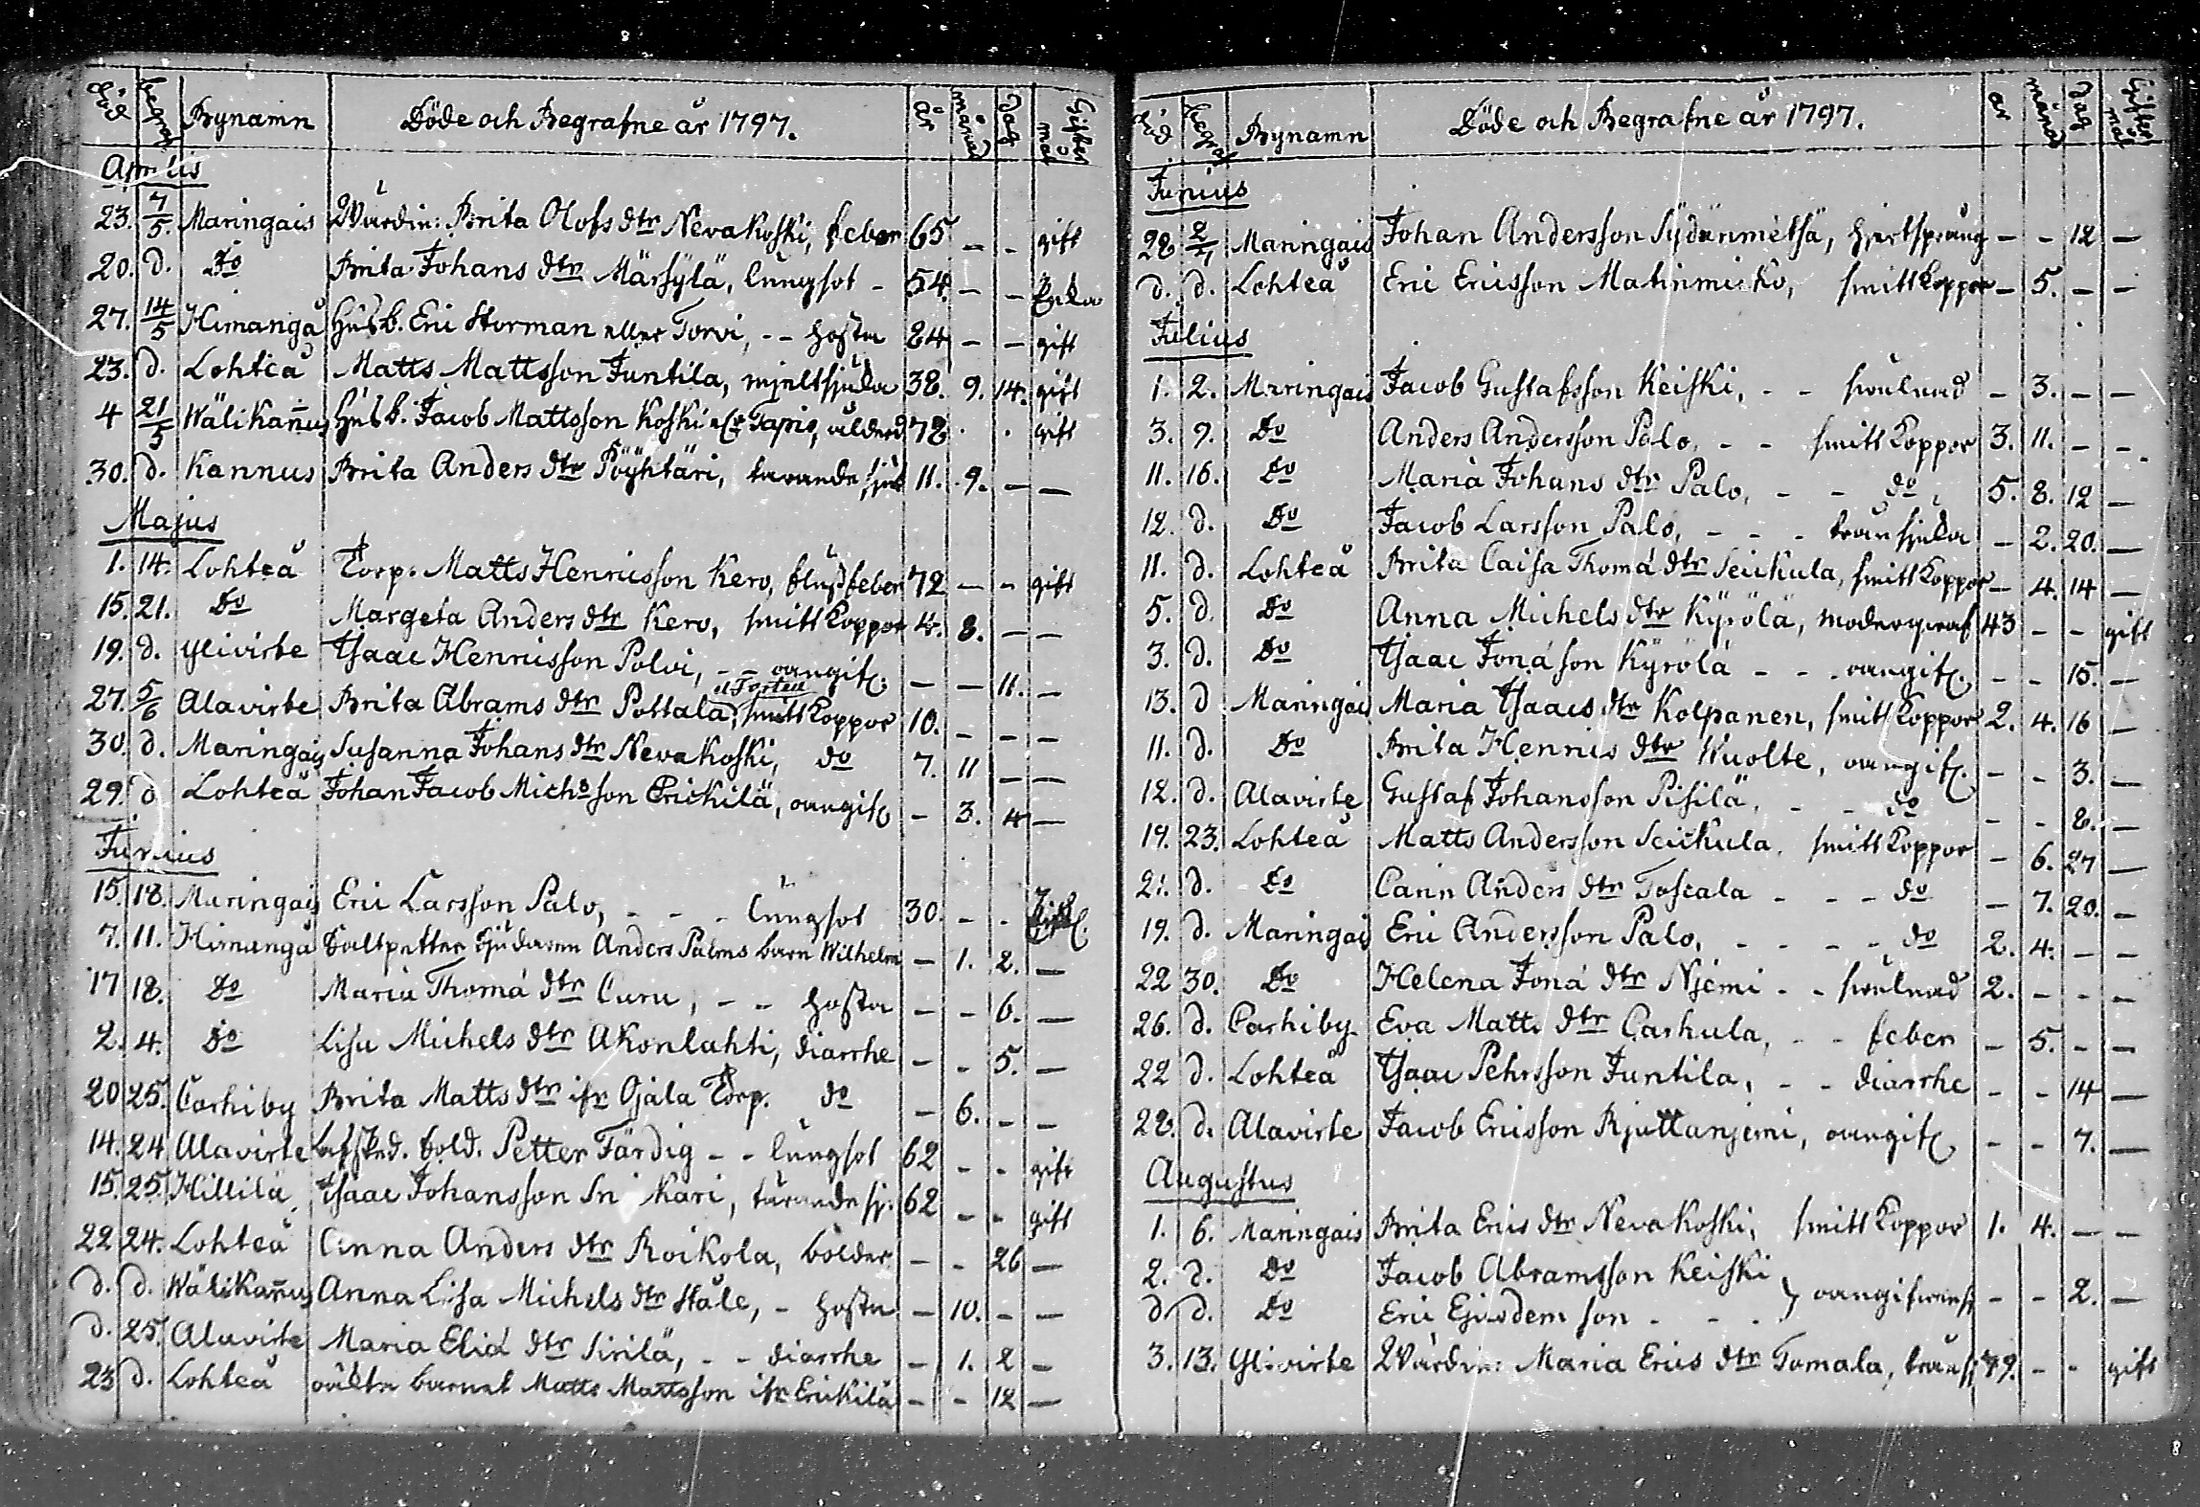 död Begraf Bynamn Döde och Begrafne år 1797. år månad dag Giftermål
Aprilis
23. 7/5. Maringais Wärdin: Brita Olofs dtr Nevakoski, feber 65 - - gift
20. d. Do Brita Johans dtr Märsylä, lungsot - 54. - - Enka
27. 14/5 Himanga Husb. Eric Storman eller Torvi, -- hosta 24 - - gift
23. d. Lohteå Matts Mattsson Juntila, mjeltsjuka 38. 9. 14. gift
4 21/5 Wälikan̄us Husb. Jacob Mattsson Koski elr Tapio, ålderd 72 . . gift
30. d. Kannus Brita Anders dtr Pöyhtäri, tärande sjuk 11. 9. - -
Majus
1. 14. Lohteå Torp. Matts Henricsson Kero, flussfeber 72 - - gift
15. 21. Do Margeta Anders dtr Kero, smittkoppor 4. 8. - -
19. d. Ylivirte Isaac Henricsson Polvi, -- oangif. - - 11. -
27. 5/6 Alavirte Brita Abrams dtr Pottala, smittkoppor 10. - - -
30. d. Maringais Susanna Johans dtr Nevakoski, do 7. 11 - -
29. d. Lohteå Johan Jacob Michsson Erickilä, oangif. - 3. 4 -
Junius
15. 18. Maringais Eric Larsson Palo, - - - lungsot 30. - -
7. 11. Himanga Saltpetter Sjudaren Anders Palms barn Wilhelm - 1. 2. -
17 18. Do Maria Thomæ dtr Curu, - - hosta - - 6. -
2. 4. Do Lisa Michels dtr Akonlahti, diarrhe - - 5. -
20 25. Carhiby Brita Matts dtr ifr Ojala Torp. do - 6. - -
14. 24 Alavirte afsked. sold. Petter Färdig - - lungsot 62 - - gift
15. 25. Hillilä Isaac Johansson Sn Kari, tärande sj. 62 - - gift
22 24. Lohteå Anna Anders dtr Roikola, bölder - - 26 -
d. d. Wälikan̄us Anna Lisa Michels dtr Ståle, - hosta - 10. - -
d. 25. Alavirte Maria Eliæ dtr Sirilä, - - diarrhe - 1. 2 -
23 d. Lohteå oäkta barnet Matts Mattsson ifr Erickilä - - 12 -
död Begraf Bynamn Döde och Begrafne år 1797. år månad dag Giftermål
Junius
28 2/7 Maringais Johan Andersson Sydänmetsä, hjertsprång - - 12 -
d. d. Lohteå Eric Ericsson Matinmicko, smittkoppor - 5. - -
Julius
1. 2. Maringais Jacob Gustafsson Keiski, - - swulnad - 3. - -
3. 9. Do Anders Andersson Palo, - - smittkoppor 3. 11. - -
11. 16. Do Maria Johans dtr Palo, - - do 5. 8. 12 -
12. d. Do Jacob Larsson Palo, - - - tränsjuka - 2. 20. -
11. d. Lohteå Brita Caisa Thomæ dtr Seickula, smittkoppor - 4. 14 -
5. d. Do Anna Michels dtr Kyrölä, moderqwaf 43 - - gift
3. d. Do Isaac Jonæson Kyrölä - - - oangif. - - 15. -
13. d Maringais Maria Isaacs dtr Kolpanen, smittkoppor 2. 4. 16 -
11. d. Do Brita Henrics dtr Wuolte, oangif. - - 3. -
12. d. Alavirte Gustaf Johansson Pisilä, - - do - - 8. -
19. 23. Lohteå Matts Andersson Seickula, smittkoppor - 6. 27 -
21. d. Do Carin Anders dtr Toscala - - - do - 7. 20. -
19. d. Maringais Eric Andersson Palo, - - - - do 2. 4. - -
22 30. Do Helena Jonæ dtr Njemi - - swulnad 2. - - -
26. d. Carhiby Eva Matts dtr Carhula, - - feber - 5. - -
22 d. Lohteå Isaac Pehrsson Juntila, - - diarrhe - - 14 -
28. d. Alavirte Jacob Ericsson Rjuttanjemi, oangif. - - 7. -
Augustus
1. 6. Maringais Brita Erics dtr Nevakoski, smittkoppor 1. 4. - -
2. d. Do Jacob Abramsson Keiski } oangifwen - - 2. -
d. d. Do Eric Ejusdem son - - -
3. 13. Ylivirte Wärdin: Maria Erics dtr Tomala, tränsj. 49. - - gift